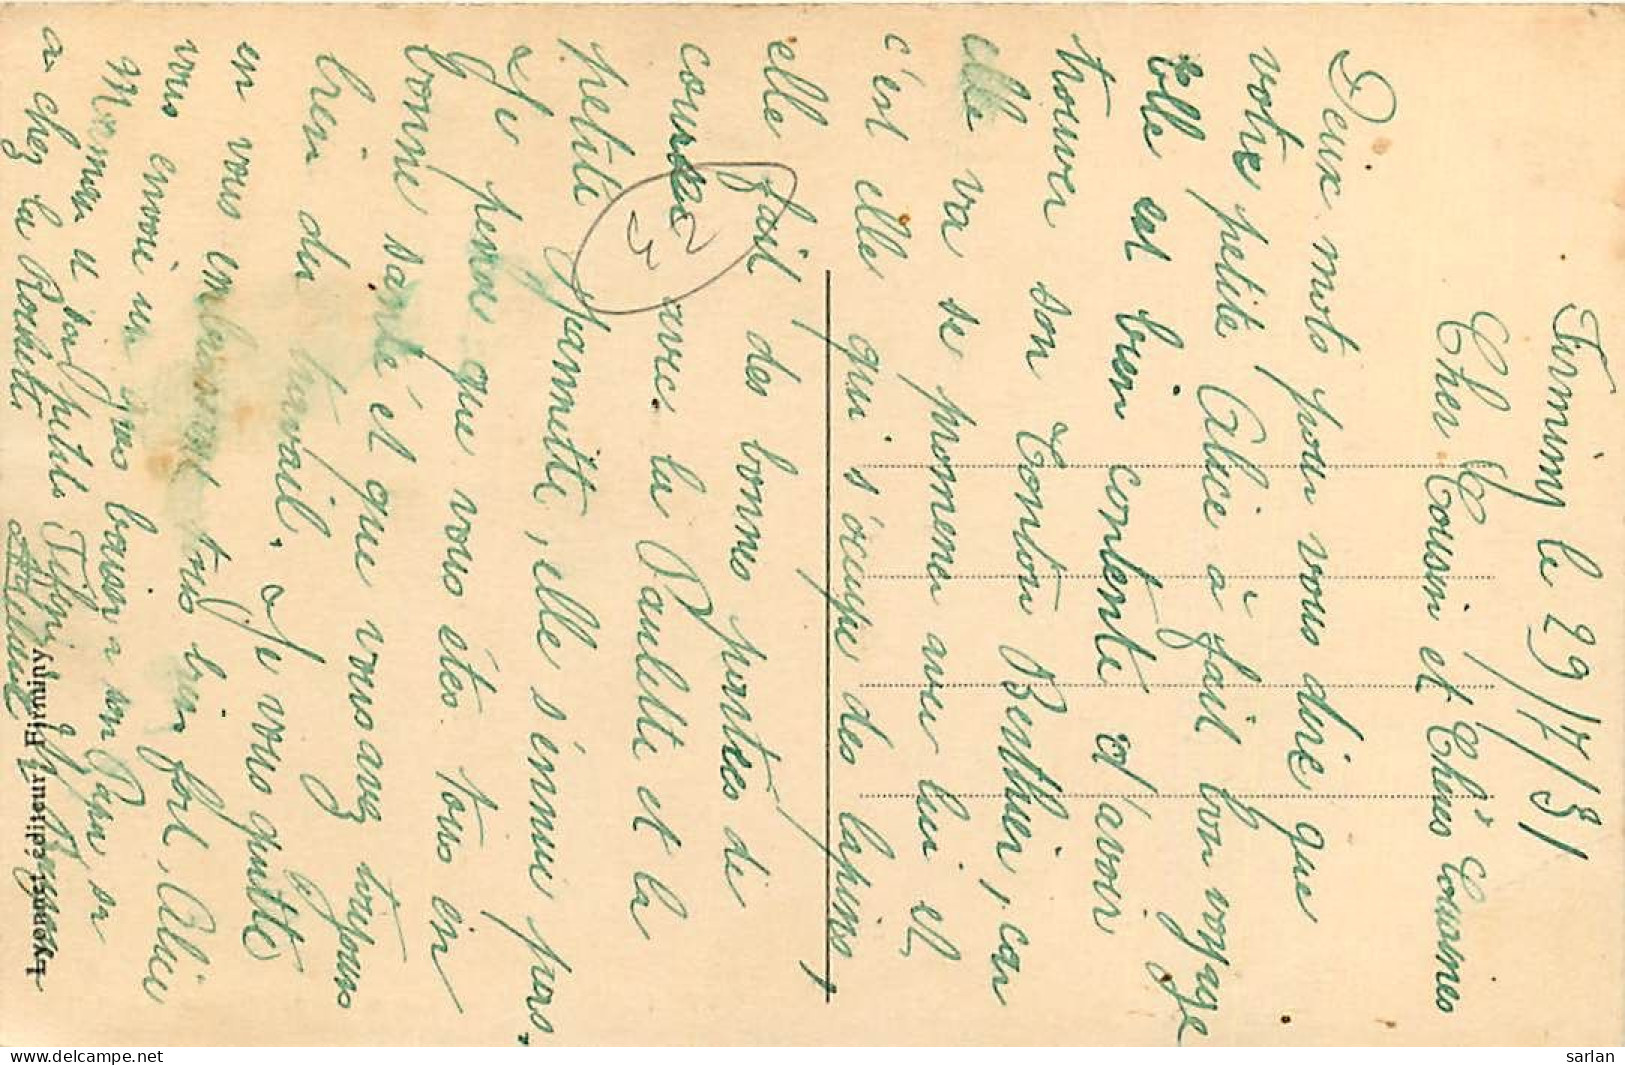 Firminy le 29/7/31
Cher Cousin et Chères Cousines
Deux mots pour vous dire que
votre petite Alice à fait bon voyage
elle est bien contente d'avoir
trouver son Tonton Benthier, car
elle va se promener avec lui et
c'est elle qui s'occupe des lapins,
elle fait des bonnes parties de
courses avec la Paulette et la
petite Jeannette, elle s'ennui pas.
Je pense que vous étes tous en
bonne santé ét que vous avez toujours
bien du travail. Je vous quitte
en vous embrassant tous bien fort, Alice
vous envoie un gros baiser a son Papa, sa
Maman et son petit
a chez la
Lyonnet, éditeur, Firminy
23
sarlan